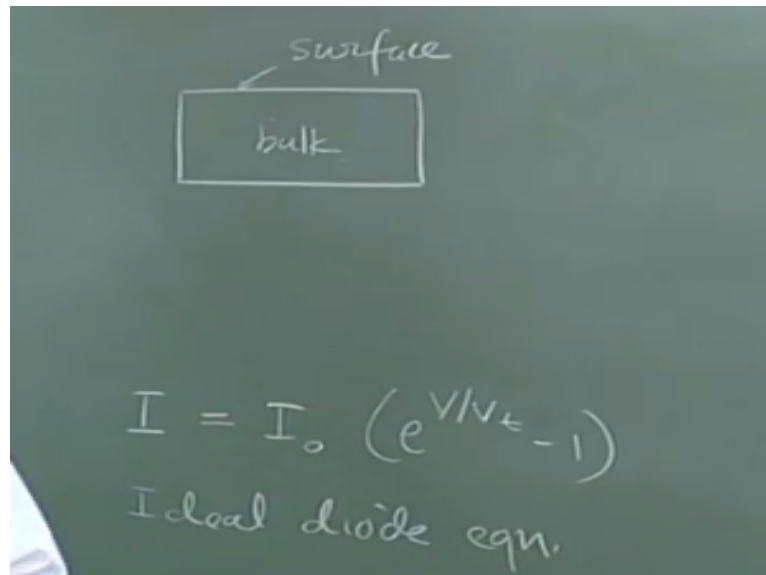 surface
bulk
I = I₀ (e^V/Vt - 1)
Ideal diode eqn.